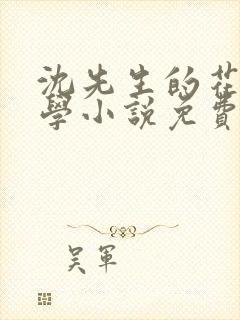 沈先生的花
學小說免費
吴軍